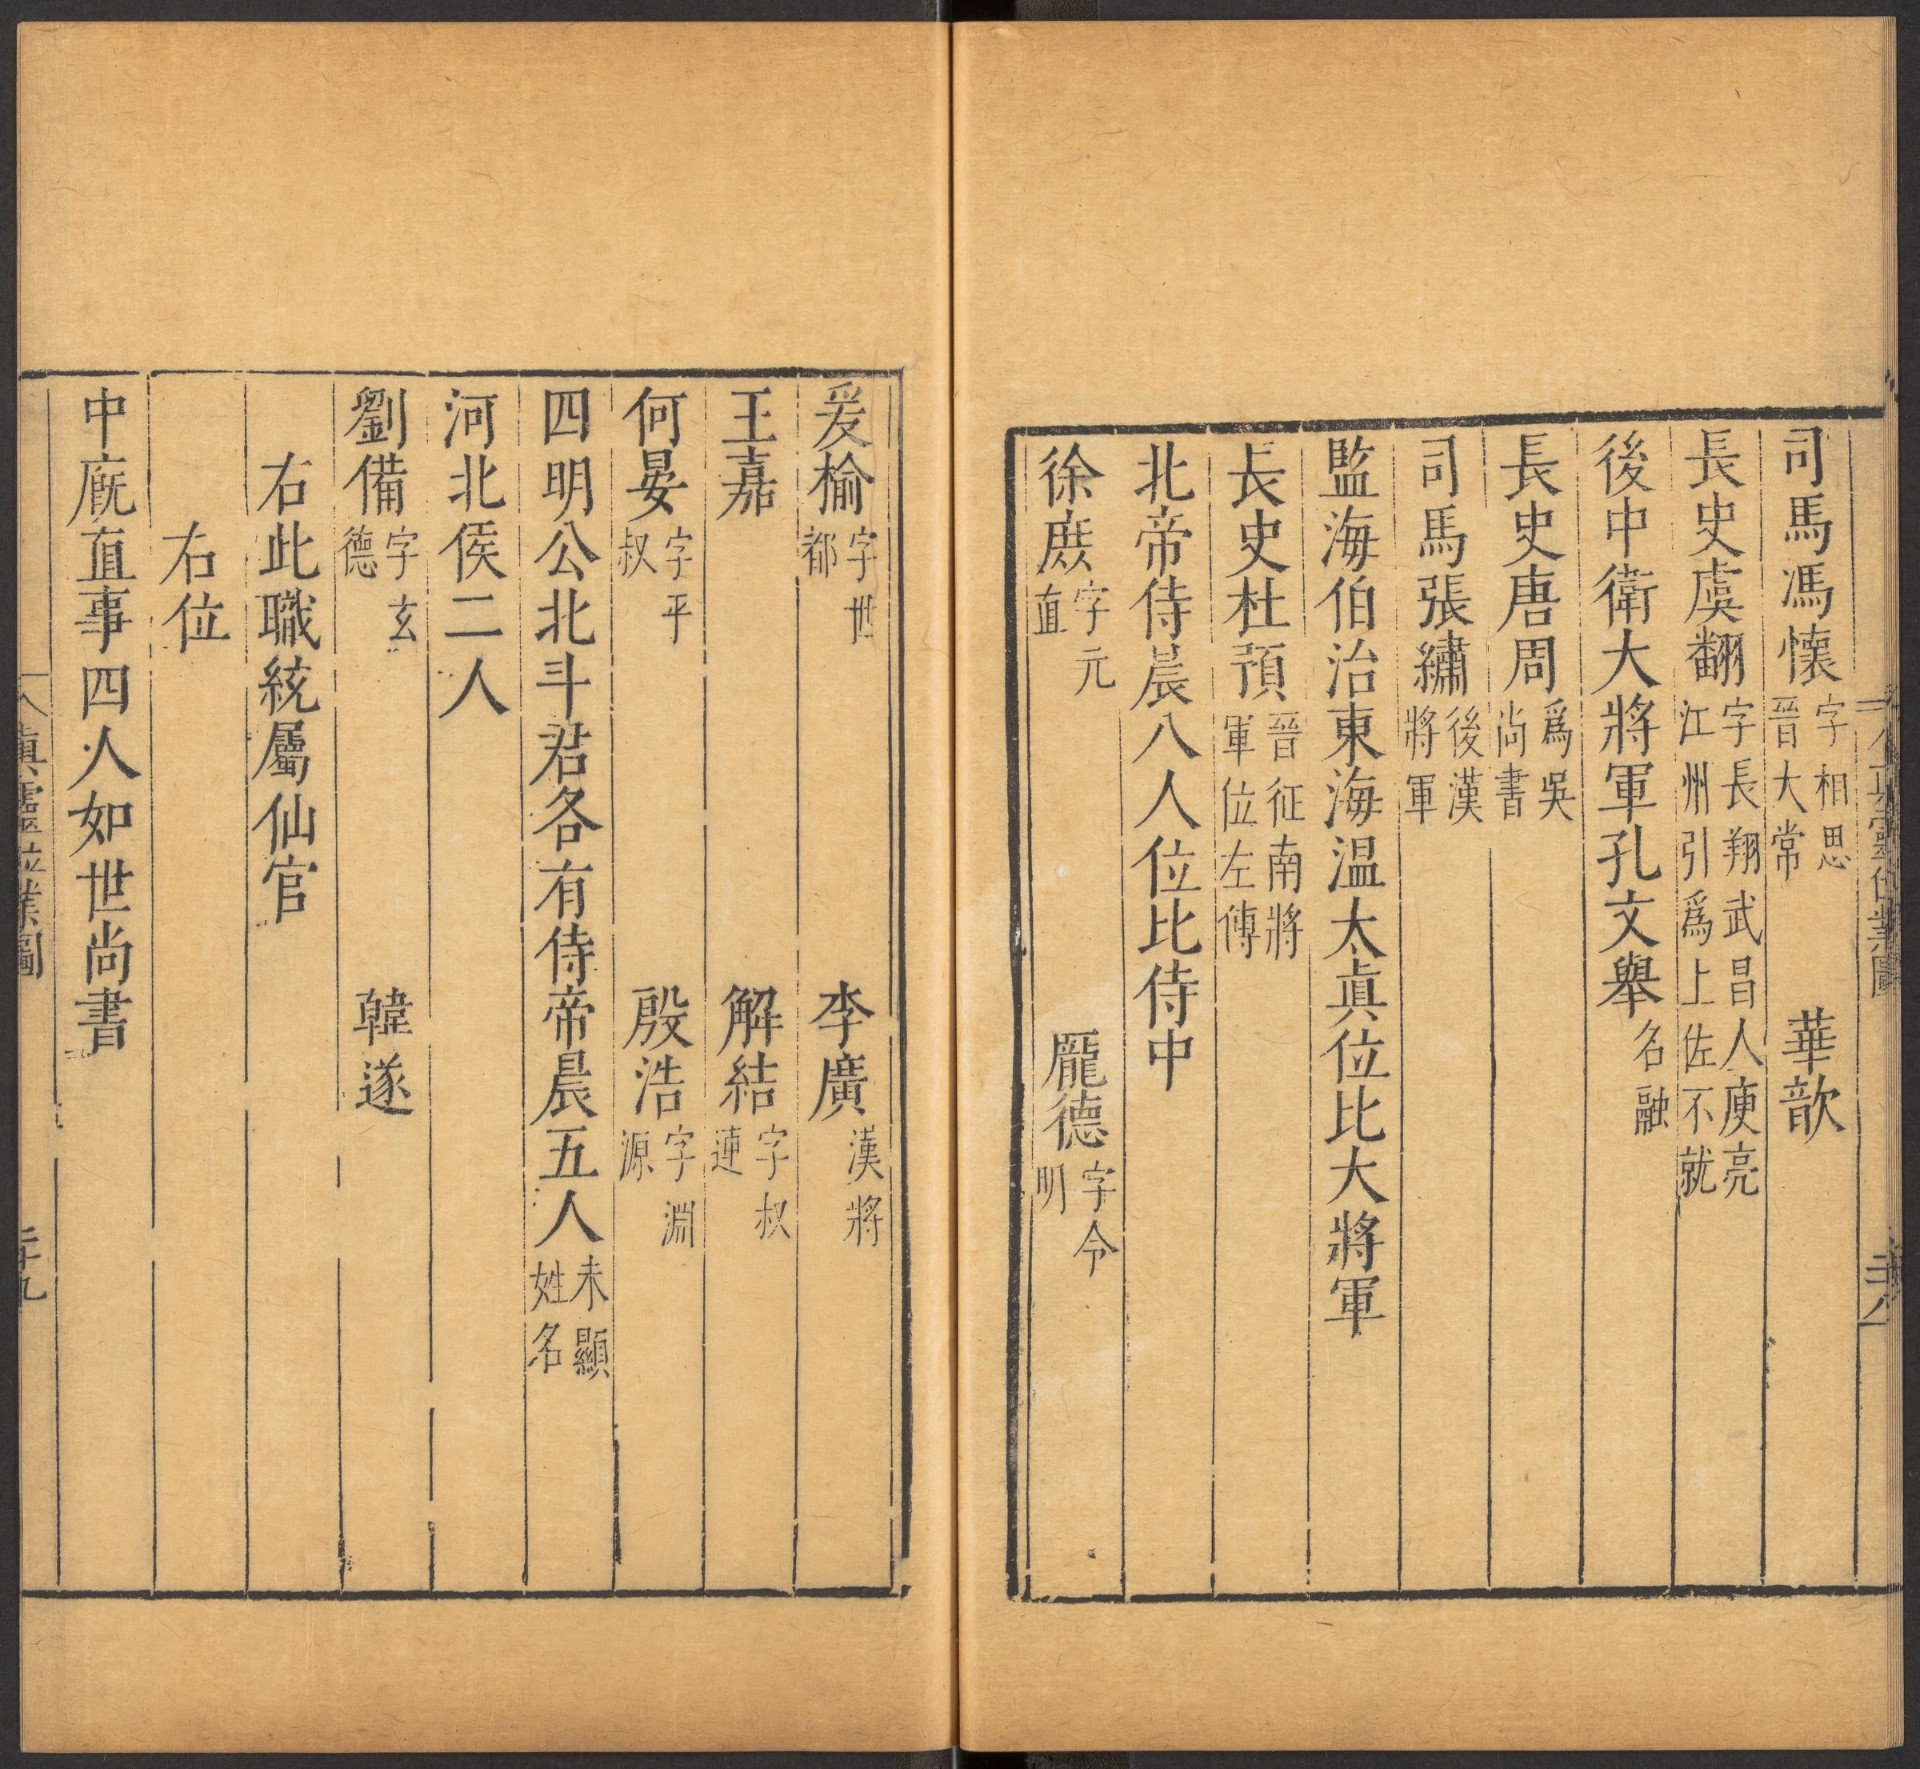 司馬馮懷字相思晉大常　華歆
長史虞翻字長翔武昌人庾亮江州引爲上佐不就
後中衛大將軍孔文舉名融
長史唐周爲吳尚書
司馬張繡後漢將軍
監海伯治東海温太眞位比大將軍
長史杜預晉征南將軍位左傳
北帝侍晨八人位比侍中
徐庶字元直　龐德字令明
爰榆字世都　李廣漢將
王嘉　解結字叔連
何晏字平叔　殷浩字淵源
四明公北斗君各有侍帝晨五人未顯姓名
河北侯二人
劉備字玄德　韓遂
右此職統屬仙官
右位
中廐直事四人如世尚書
眞靈位業圖
二十九